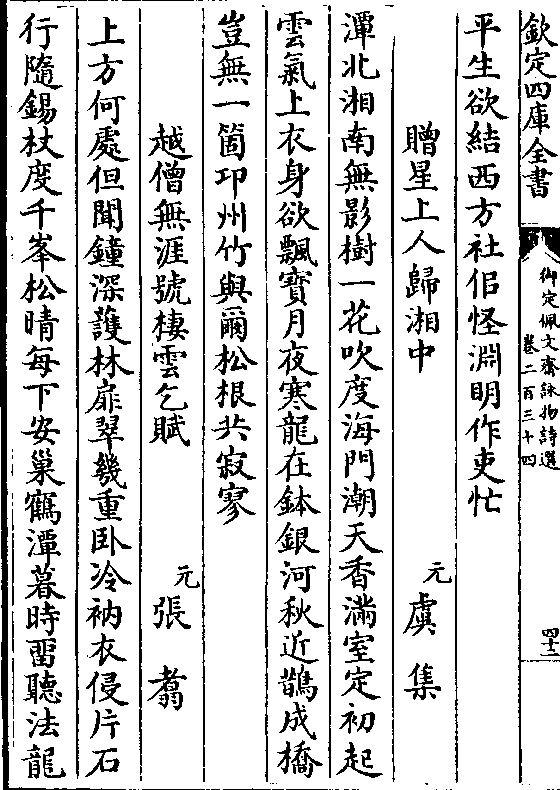 欽定四庫全書
御定佩文齋詠物詩選
卷二百三十四
四十二
平生欲結西方社但怪淵明作吏忙
贈星上人歸湘中 元 虞集
潭北湘南無影樹一花吹度海門潮天香滿室定初起
雲氣上衣身欲飄寶月夜寒龍在鉢銀河秋近鵲成橋
豈無一箇邛州竹與爾松根共寂寥
越僧無涯號棲雲乞賦 元 張翥
上方何處但聞鐘深護林扉翠幾重卧冷衲衣侵片石
行隨錫杖度千峯松晴每下安巢鶴潭暮時留聽法龍